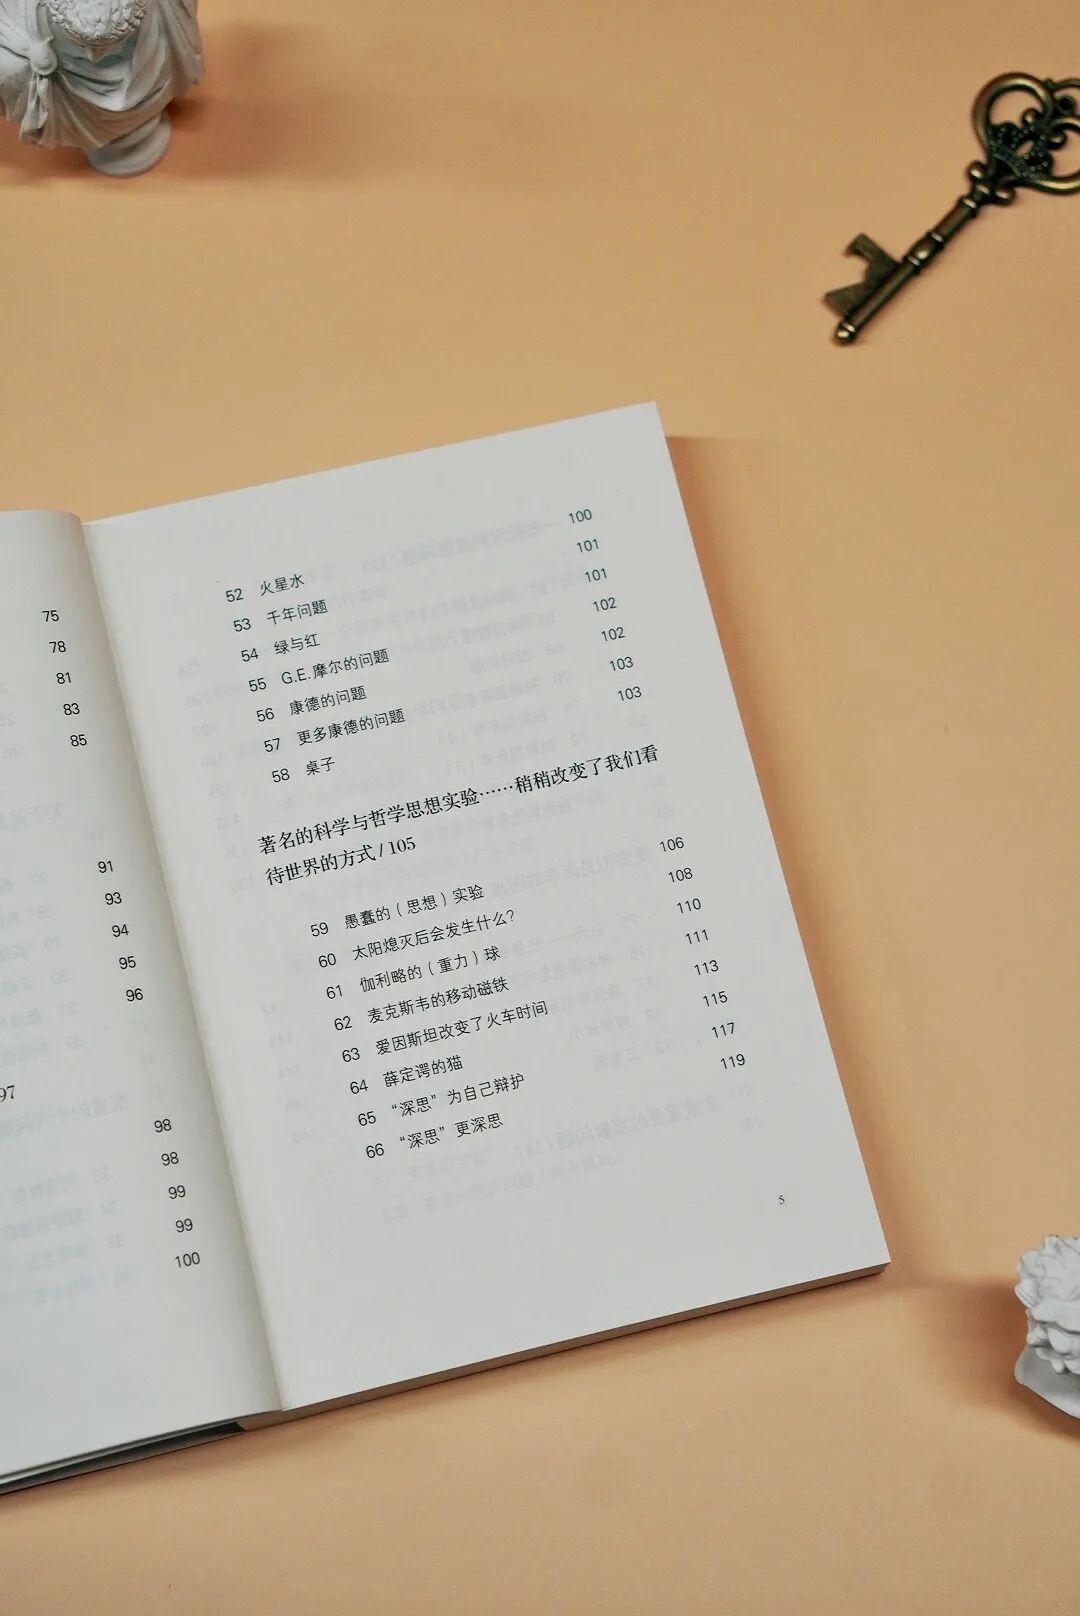 75
78
81
83
85
91
93
94
95
96
97
98
98
99
99
100
52 火星水 100
53 千年问题 101
54 绿与红 101
55 G.E.摩尔的问题 102
56 康德的问题 102
57 更多康德的问题 103
58 桌子 103
著名的科学与哲学思想实验……稍稍改变了我们看
待世界的方式/105
59 愚蠢的（思想）实验 106
60 太阳熄灭后会发生什么？ 108
61 伽利略的（重力）球 110
62 麦克斯韦的移动磁铁 111
63 爱因斯坦改变了火车时间 113
64 薛定谔的猫 115
65 “深思”为自己辩护 117
66 “深思”更深思 119
5